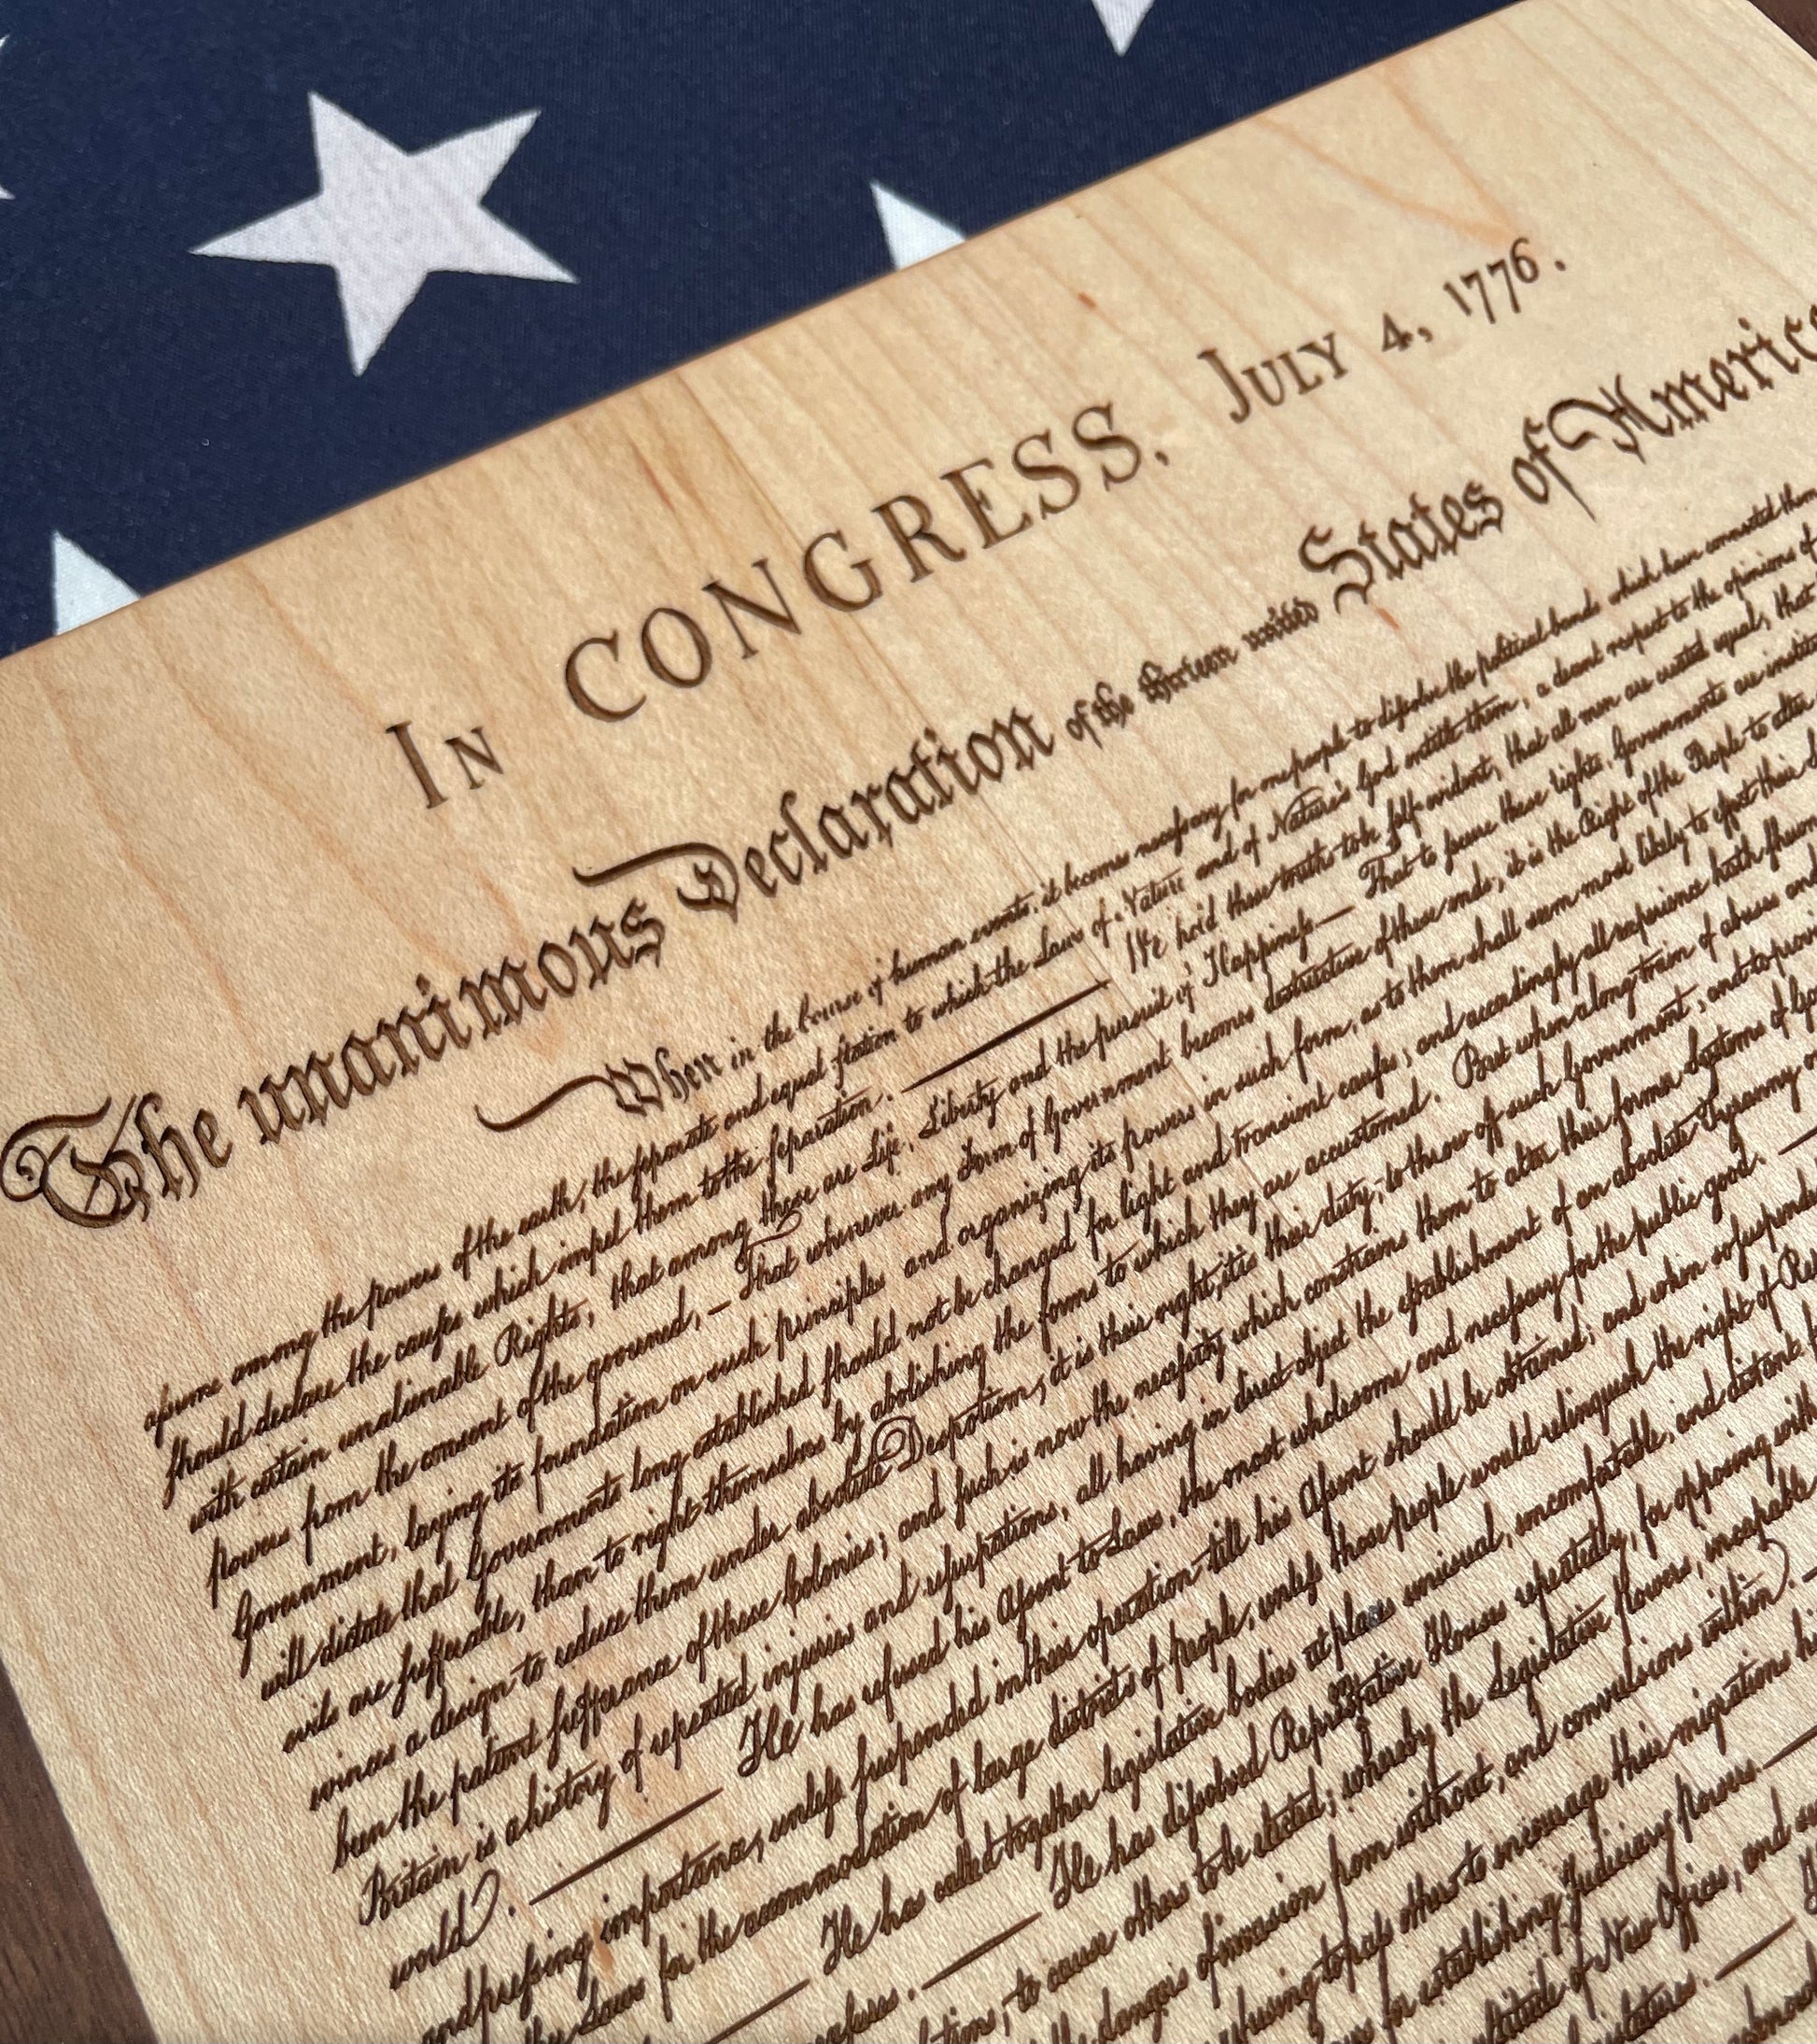 IN CONGRESS. JULY 4, 1776.
The unanimous Declaration of the thirteen united States of America
When in the Course of human events, it becomes necessary for one people to dissolve the political bands which have connected them
among the powers of the earth, the separate and equal station to which the Laws of Nature and of Nature's God entitle them, a decent respect to the opinions of
should declare the causes which impel them to the separation. — We hold these truths to be self-evident, that all men are created equal, that
with certain unalienable Rights, that among these are Life, Liberty and the pursuit of Happiness — That to secure these rights, Governments are
powers from the consent of the governed, — That whenever any Form of Government becomes destructive of these ends, it is the Right of the People to alter
Government, laying its foundation on such principles and organizing its powers in such form, as to them shall seem most likely to effect their
will dictate that Governments long established should not be changed for light and transient causes; and accordingly all experience hath shewn
evils are sufferable, than to right themselves by abolishing the forms to which they are accustomed. But when a long train of abuses and
evinces a design to reduce them under absolute Despotism, it is their right, it is their duty, to throw off such Government, and to
been the patient sufferance of these Colonies; and such is now the necessity which constrains them to alter their former Systems of
Britain is a history of repeated injuries and usurpations, all having in direct object the establishment of an absolute Tyranny
world. — He has refused his Assent to Laws, the most wholesome and necessary for the public good. —
and pressing importance, unless suspended in their operation till his Assent should be obtained; and when so suspended
the Laws for the accommodation of large districts of people, unless those people would relinquish the right of
— He has called together legislative bodies at places unusual, uncomfortable, and distant
— He has dissolved Representative Houses repeatedly, for opposing with
to cause others to be elected; whereby the Legislative powers, incapable
the dangers of invasion from without, and convulsions within. —
to pass others to encourage their migrations
for establishing Judiciary powers. —
of New Offices, and